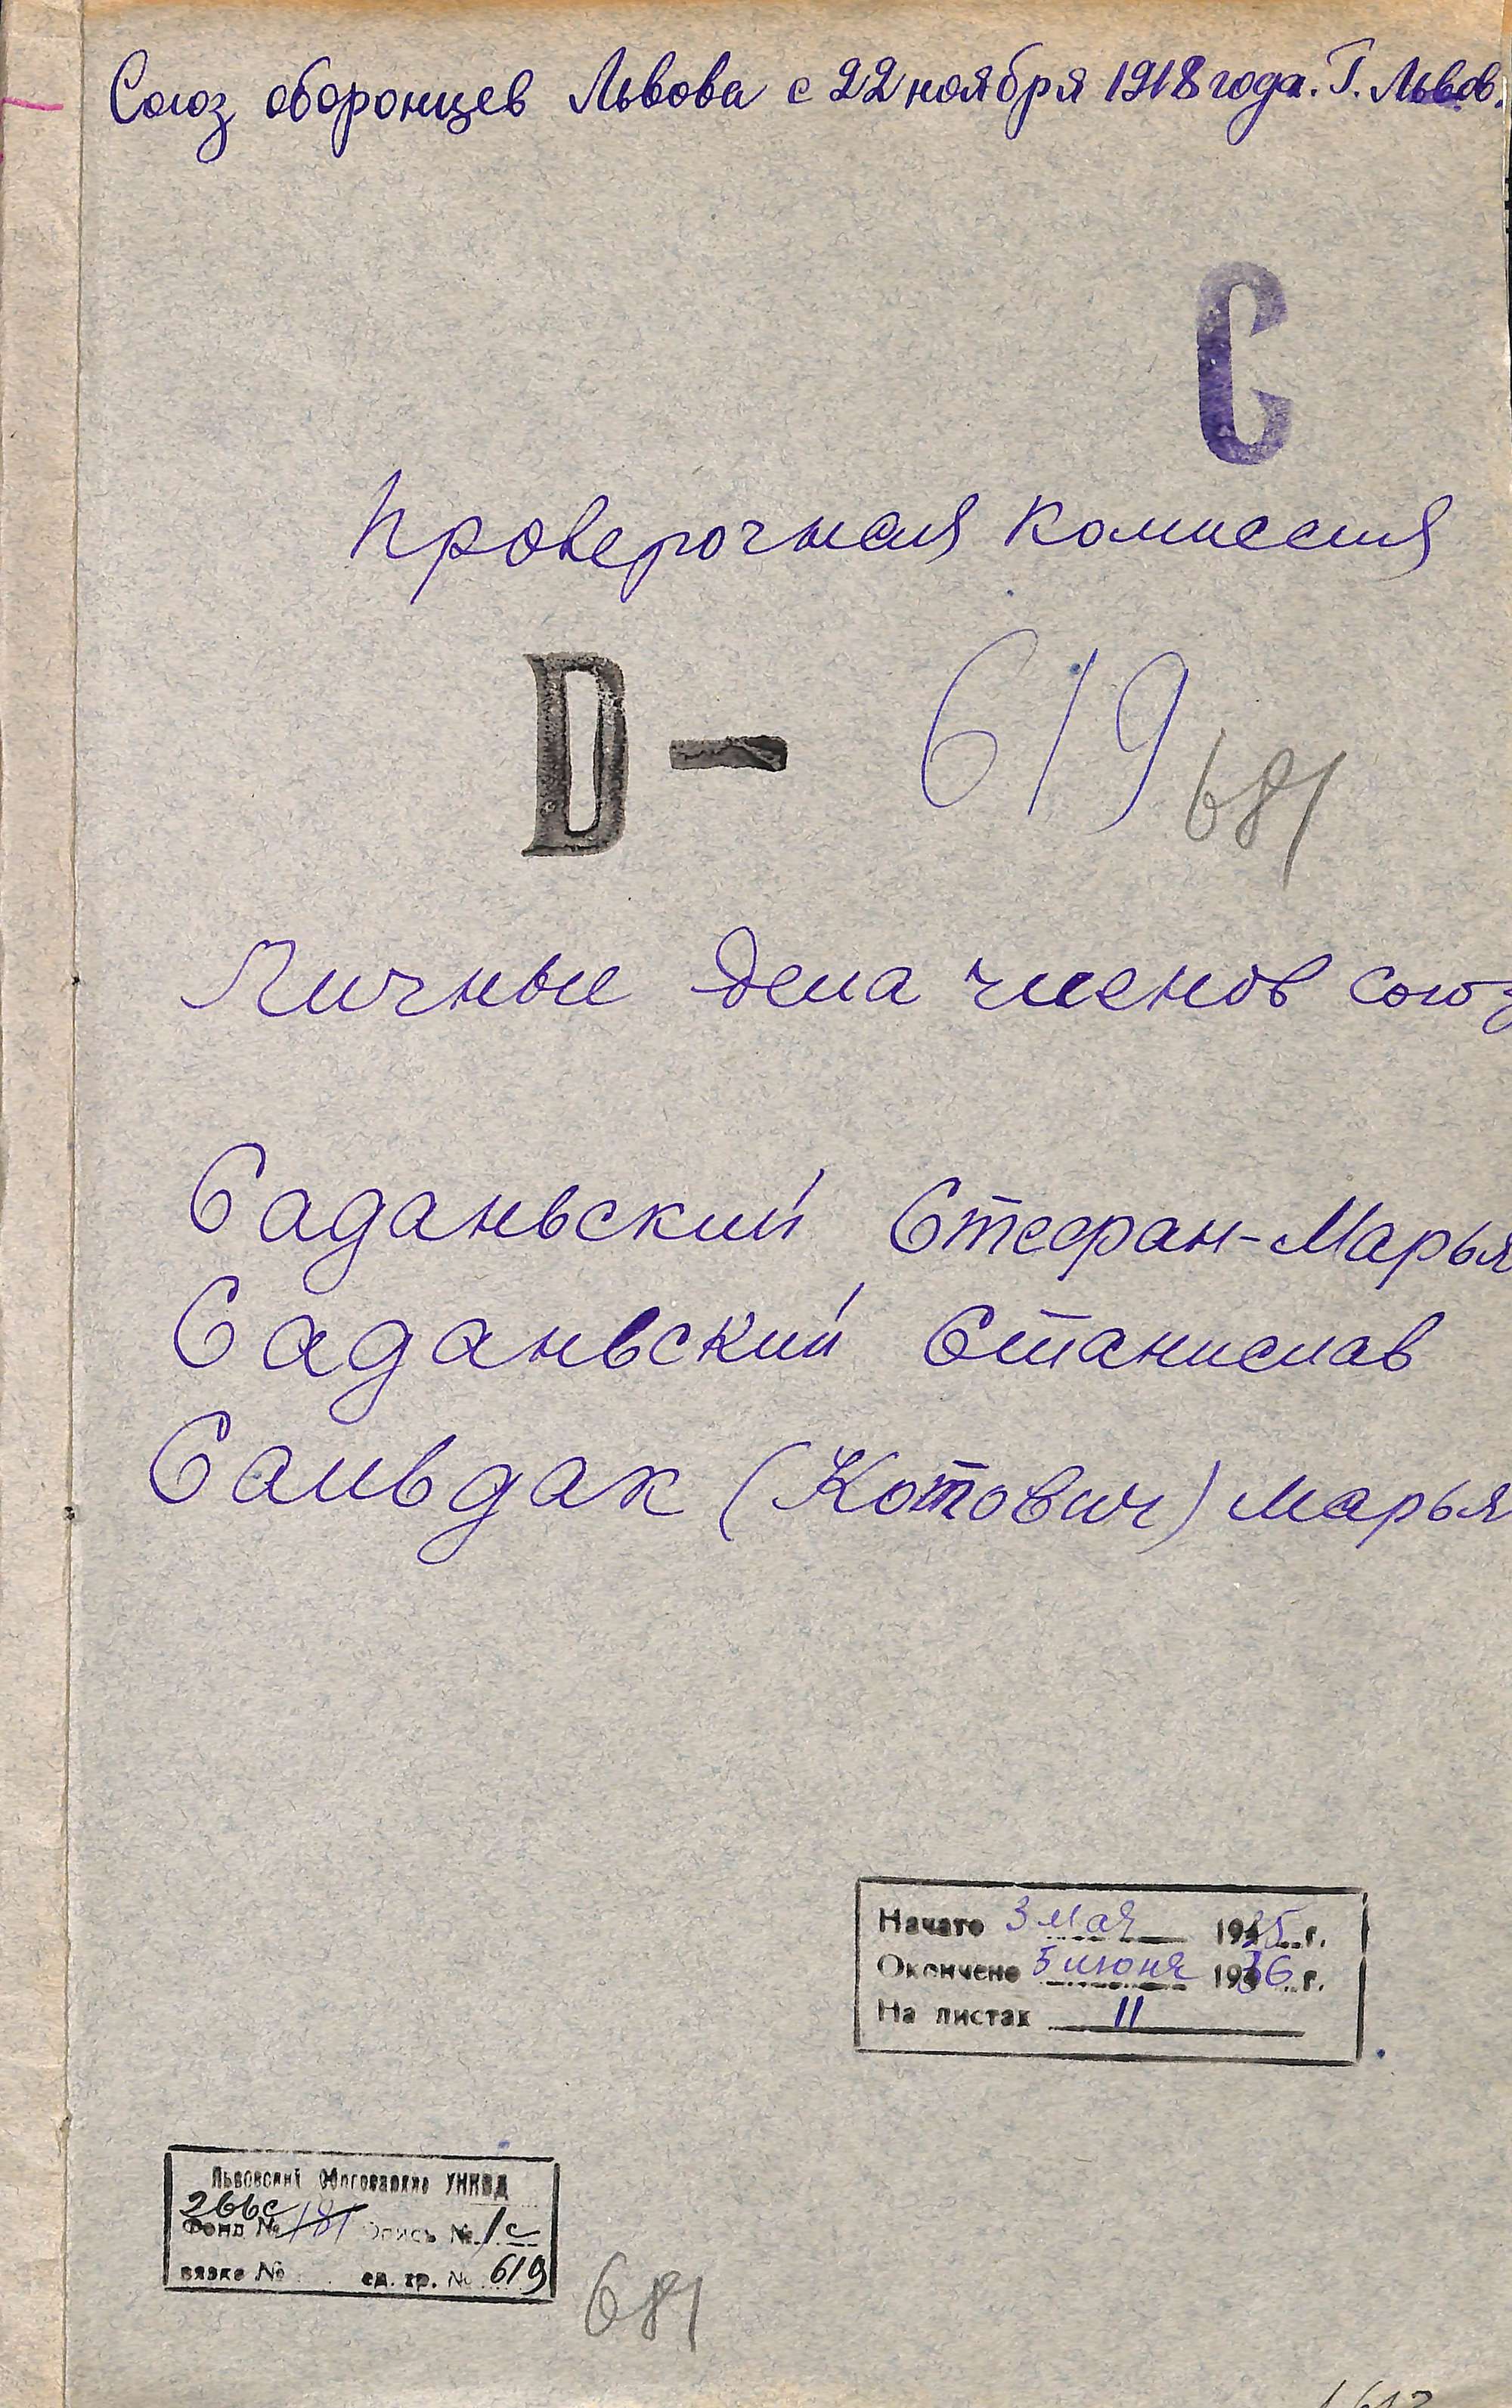 Союз оборонцев Львова с 22 ноября 1918 года. Г. Львов.
С
Проверочная комиссия
D - 619
681
Личные дела членов союз
Саданьский Стефан-Марья
Саданьский Станислав
Сальдак (Котович) Марья
Начато 3 мая 1935 г.
Окончено 5 июня 1936 г.
На листах 11
Львовский Облгосархив УНКВД
266с
Фонд № 181 Опись № 1с
вязка № ед. хр. № 619
681